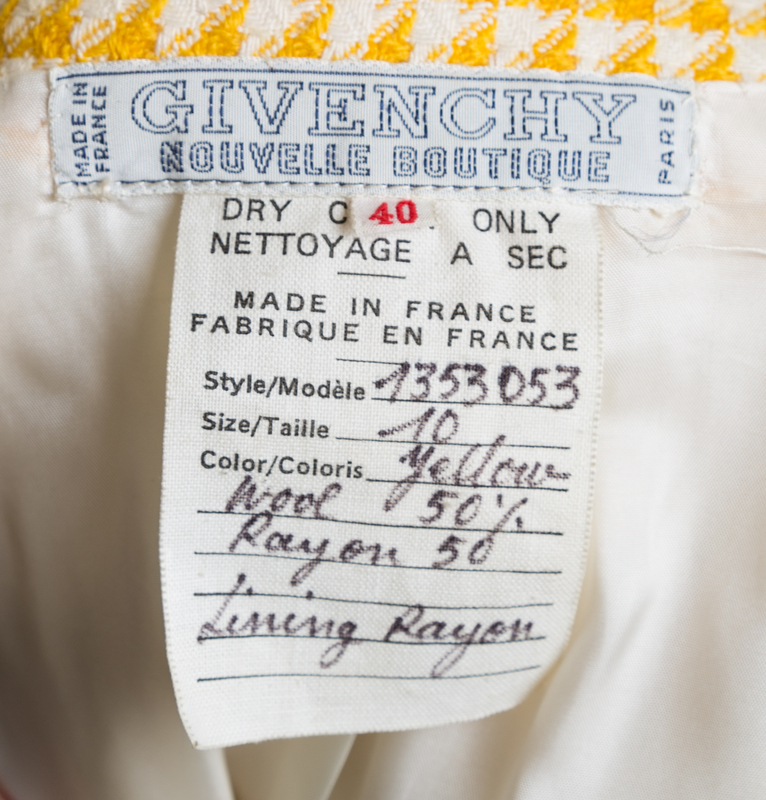 MADE IN FRANCE
GIVENCHY
NOUVELLE BOUTIQUE
PARIS
DRY C 40 . ONLY
NETTOYAGE A SEC
MADE IN FRANCE
FABRIQUE EN FRANCE
Style/Modèle 1353053
Size/Taille 10
Color/Coloris Yellow
Wool 50%
Rayon 50
Lining Rayon